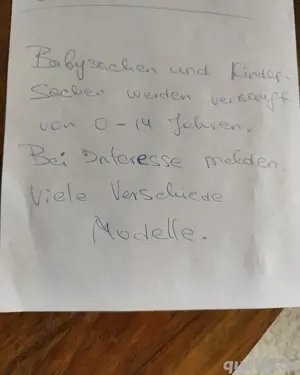 Babysachen und Kinder-
Sachen werden verkauft
von 0-14 Jahren.
Bei Interesse melden
Viele Verschiede
Modelle.